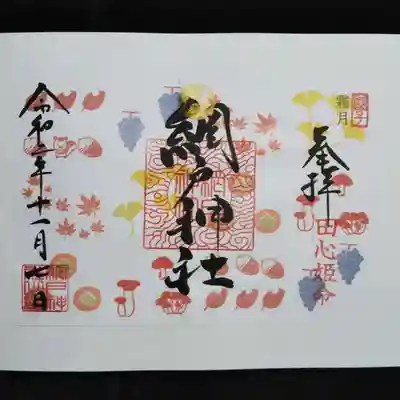 庚子
霜月
奉拝
田心姫命
網戸神社
令和二年十一月七日